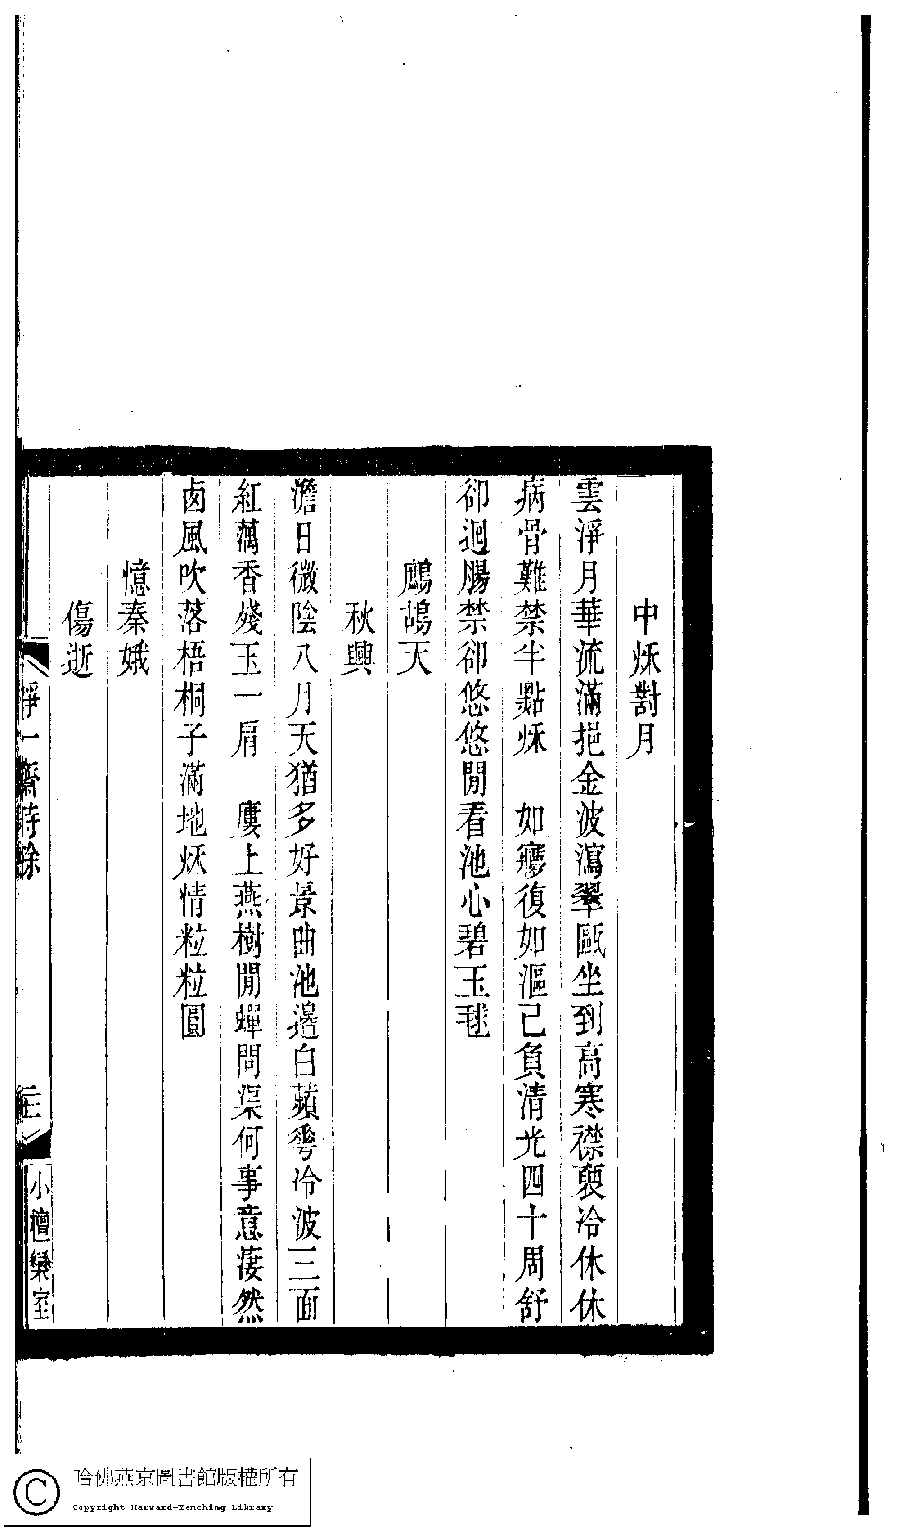 中秌對月
雲淨月華流滿挹金波瀉翠甌坐到高寒襟褏冷休休
病骨難禁半點秌　如㾼復如漚已負清光四十周舒
卻迴腸禁卻悠悠閒看池心碧玉毬
鷓鴣天
秋興
澹日微陰八月天猶多好景曲池邊白蘋雩冷波三面
紅藕香殘玉一肩　廔上燕樹閒蟬問渠何事意淒然
鹵風吹落梧桐子滿地秌情粒粒圓
憶秦娥
傷逝
淨一齋詩餘
小檀欒室
哈佛燕京圖書館版權所有
Copyright Harvard-Yenching Library